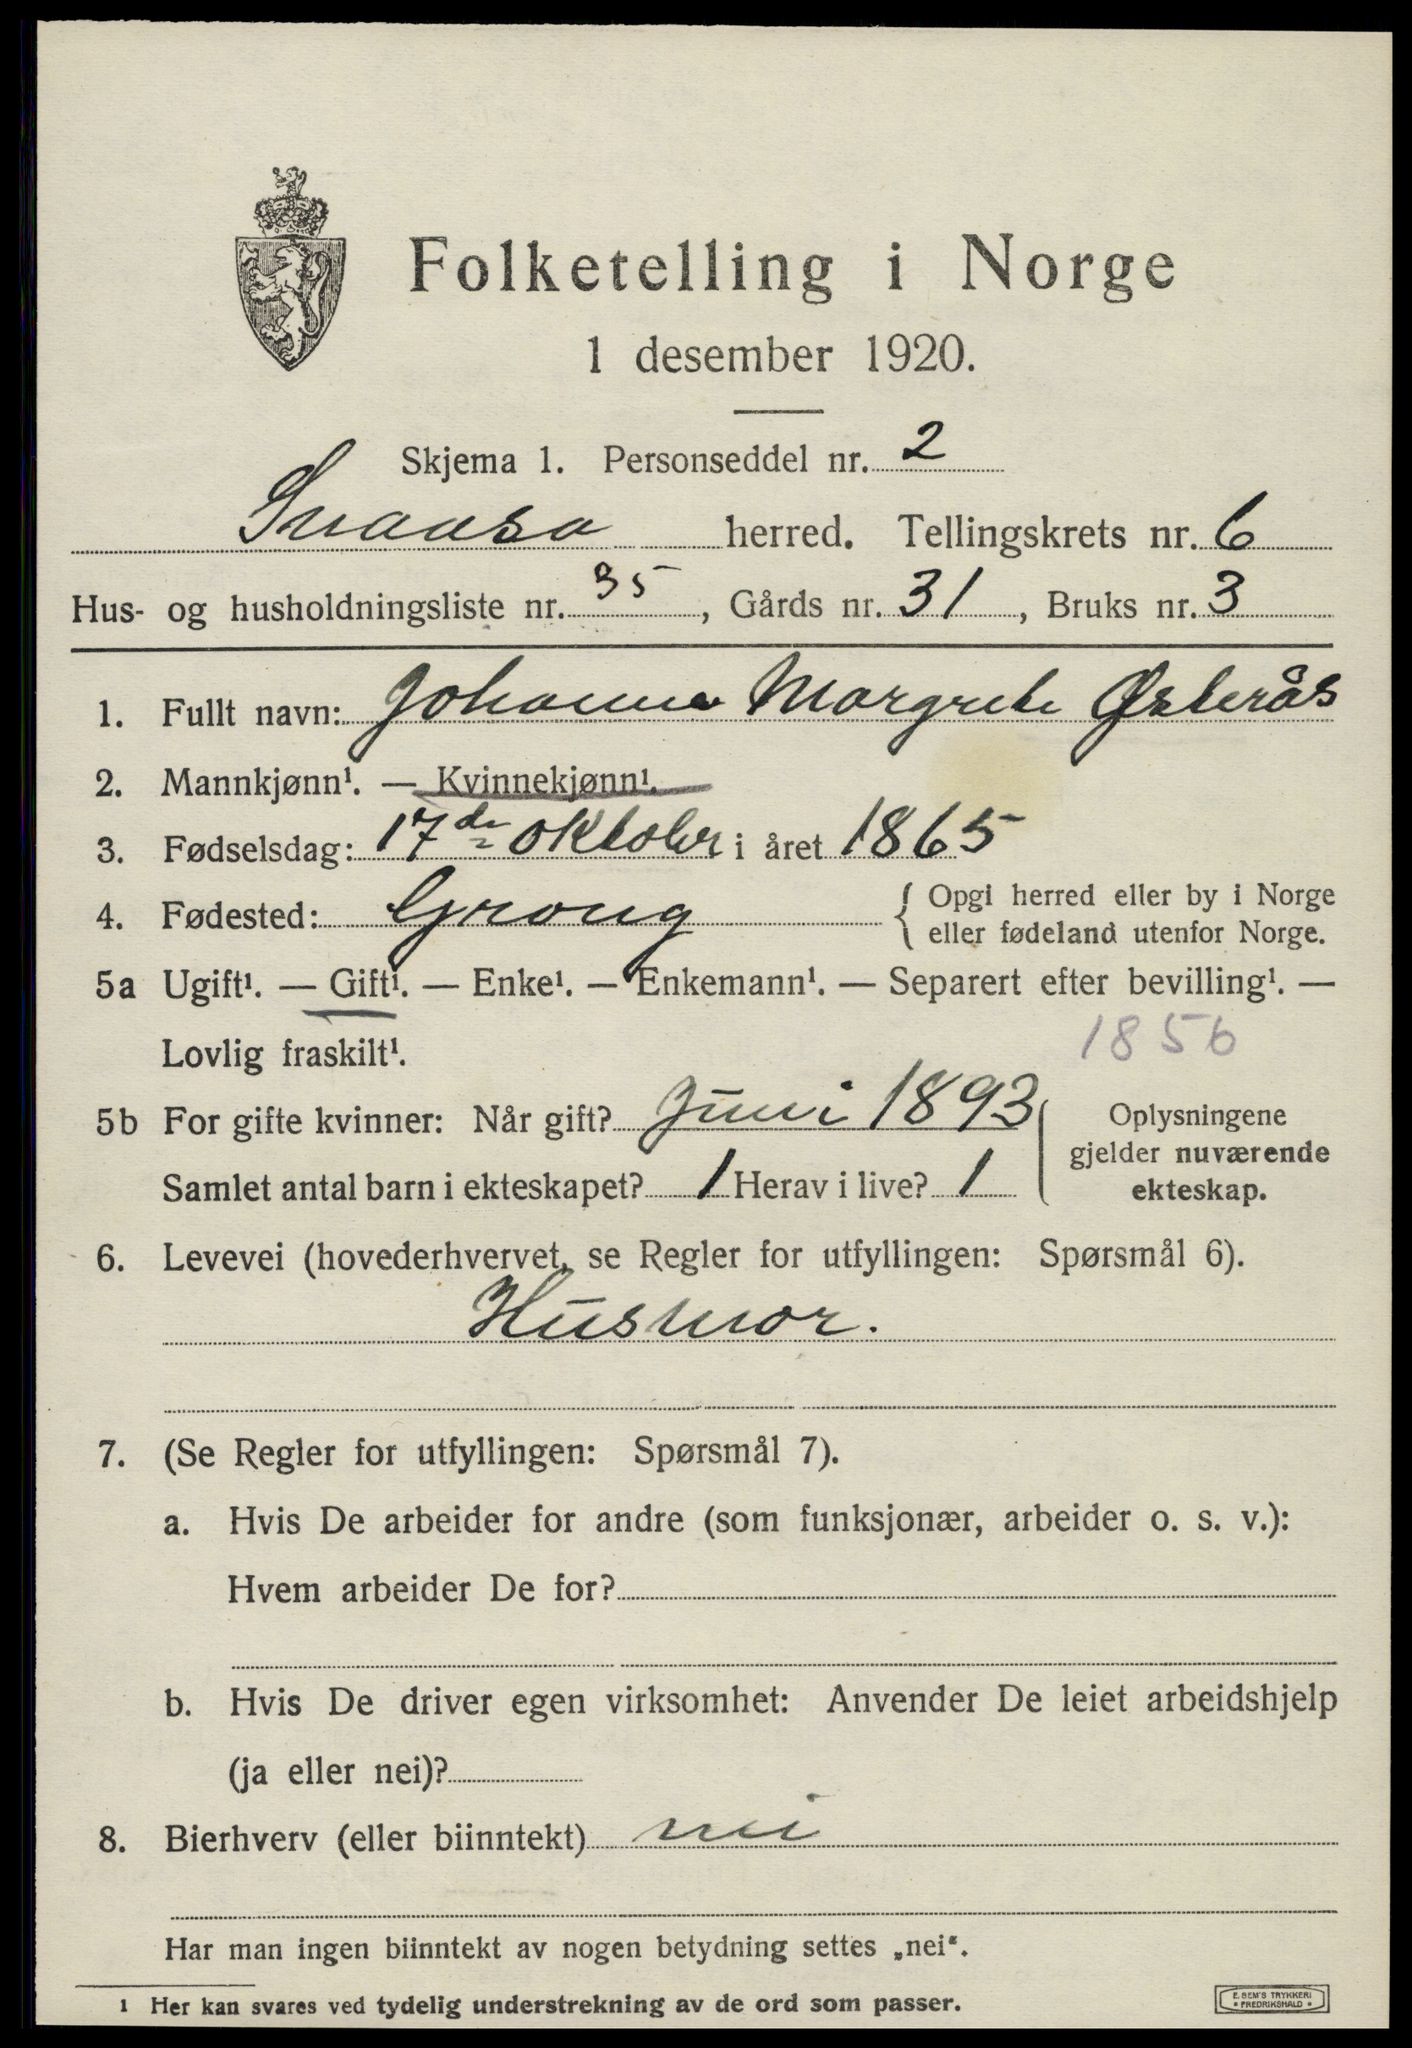 Folketelling i Norge
1 desember 1920.
Skjema 1. Personseddel nr. 2
Snaasa herred. Tellingskrets nr. 6
Hus- og husholdningsliste nr. 35, Gårds nr. 31, Bruks nr. 3
1. Fullt navn: Johanna Margrete Østerås
2. Mannkjønn¹. — Kvinnekjønn¹.
3. Fødselsdag: 17de oktober i året 1865
4. Fødested: Grong { Opgi herred eller by i Norge
eller fødeland utenfor Norge.
5a Ugift¹. — Gift¹. — Enke¹. — Enkemann¹. — Separert efter bevilling¹. —
Lovlig fraskilt¹. 1856
5b For gifte kvinner: Når gift? Juni 1893
Samlet antal barn i ekteskapet? 1 Herav i live? 1
Oplysningene
gjelder nuværende
ekteskap.
6. Levevei (hovederhvervet, se Regler for utfyllingen: Spørsmål 6).
Husmor.
7. (Se Regler for utfyllingen: Spørsmål 7).
a. Hvis De arbeider for andre (som funksjonær, arbeider o. s. v.):
Hvem arbeider De for?
b. Hvis De driver egen virksomhet: Anvender De leiet arbeidshjelp
(ja eller nei)?
8. Bierhverv (eller biinntekt) nei
Har man ingen biinntekt av nogen betydning settes „nei“.
1 Her kan svares ved tydelig understrekning av de ord som passer.
E. SEM'S TRYKKERI
• FREDRIKSHALD •